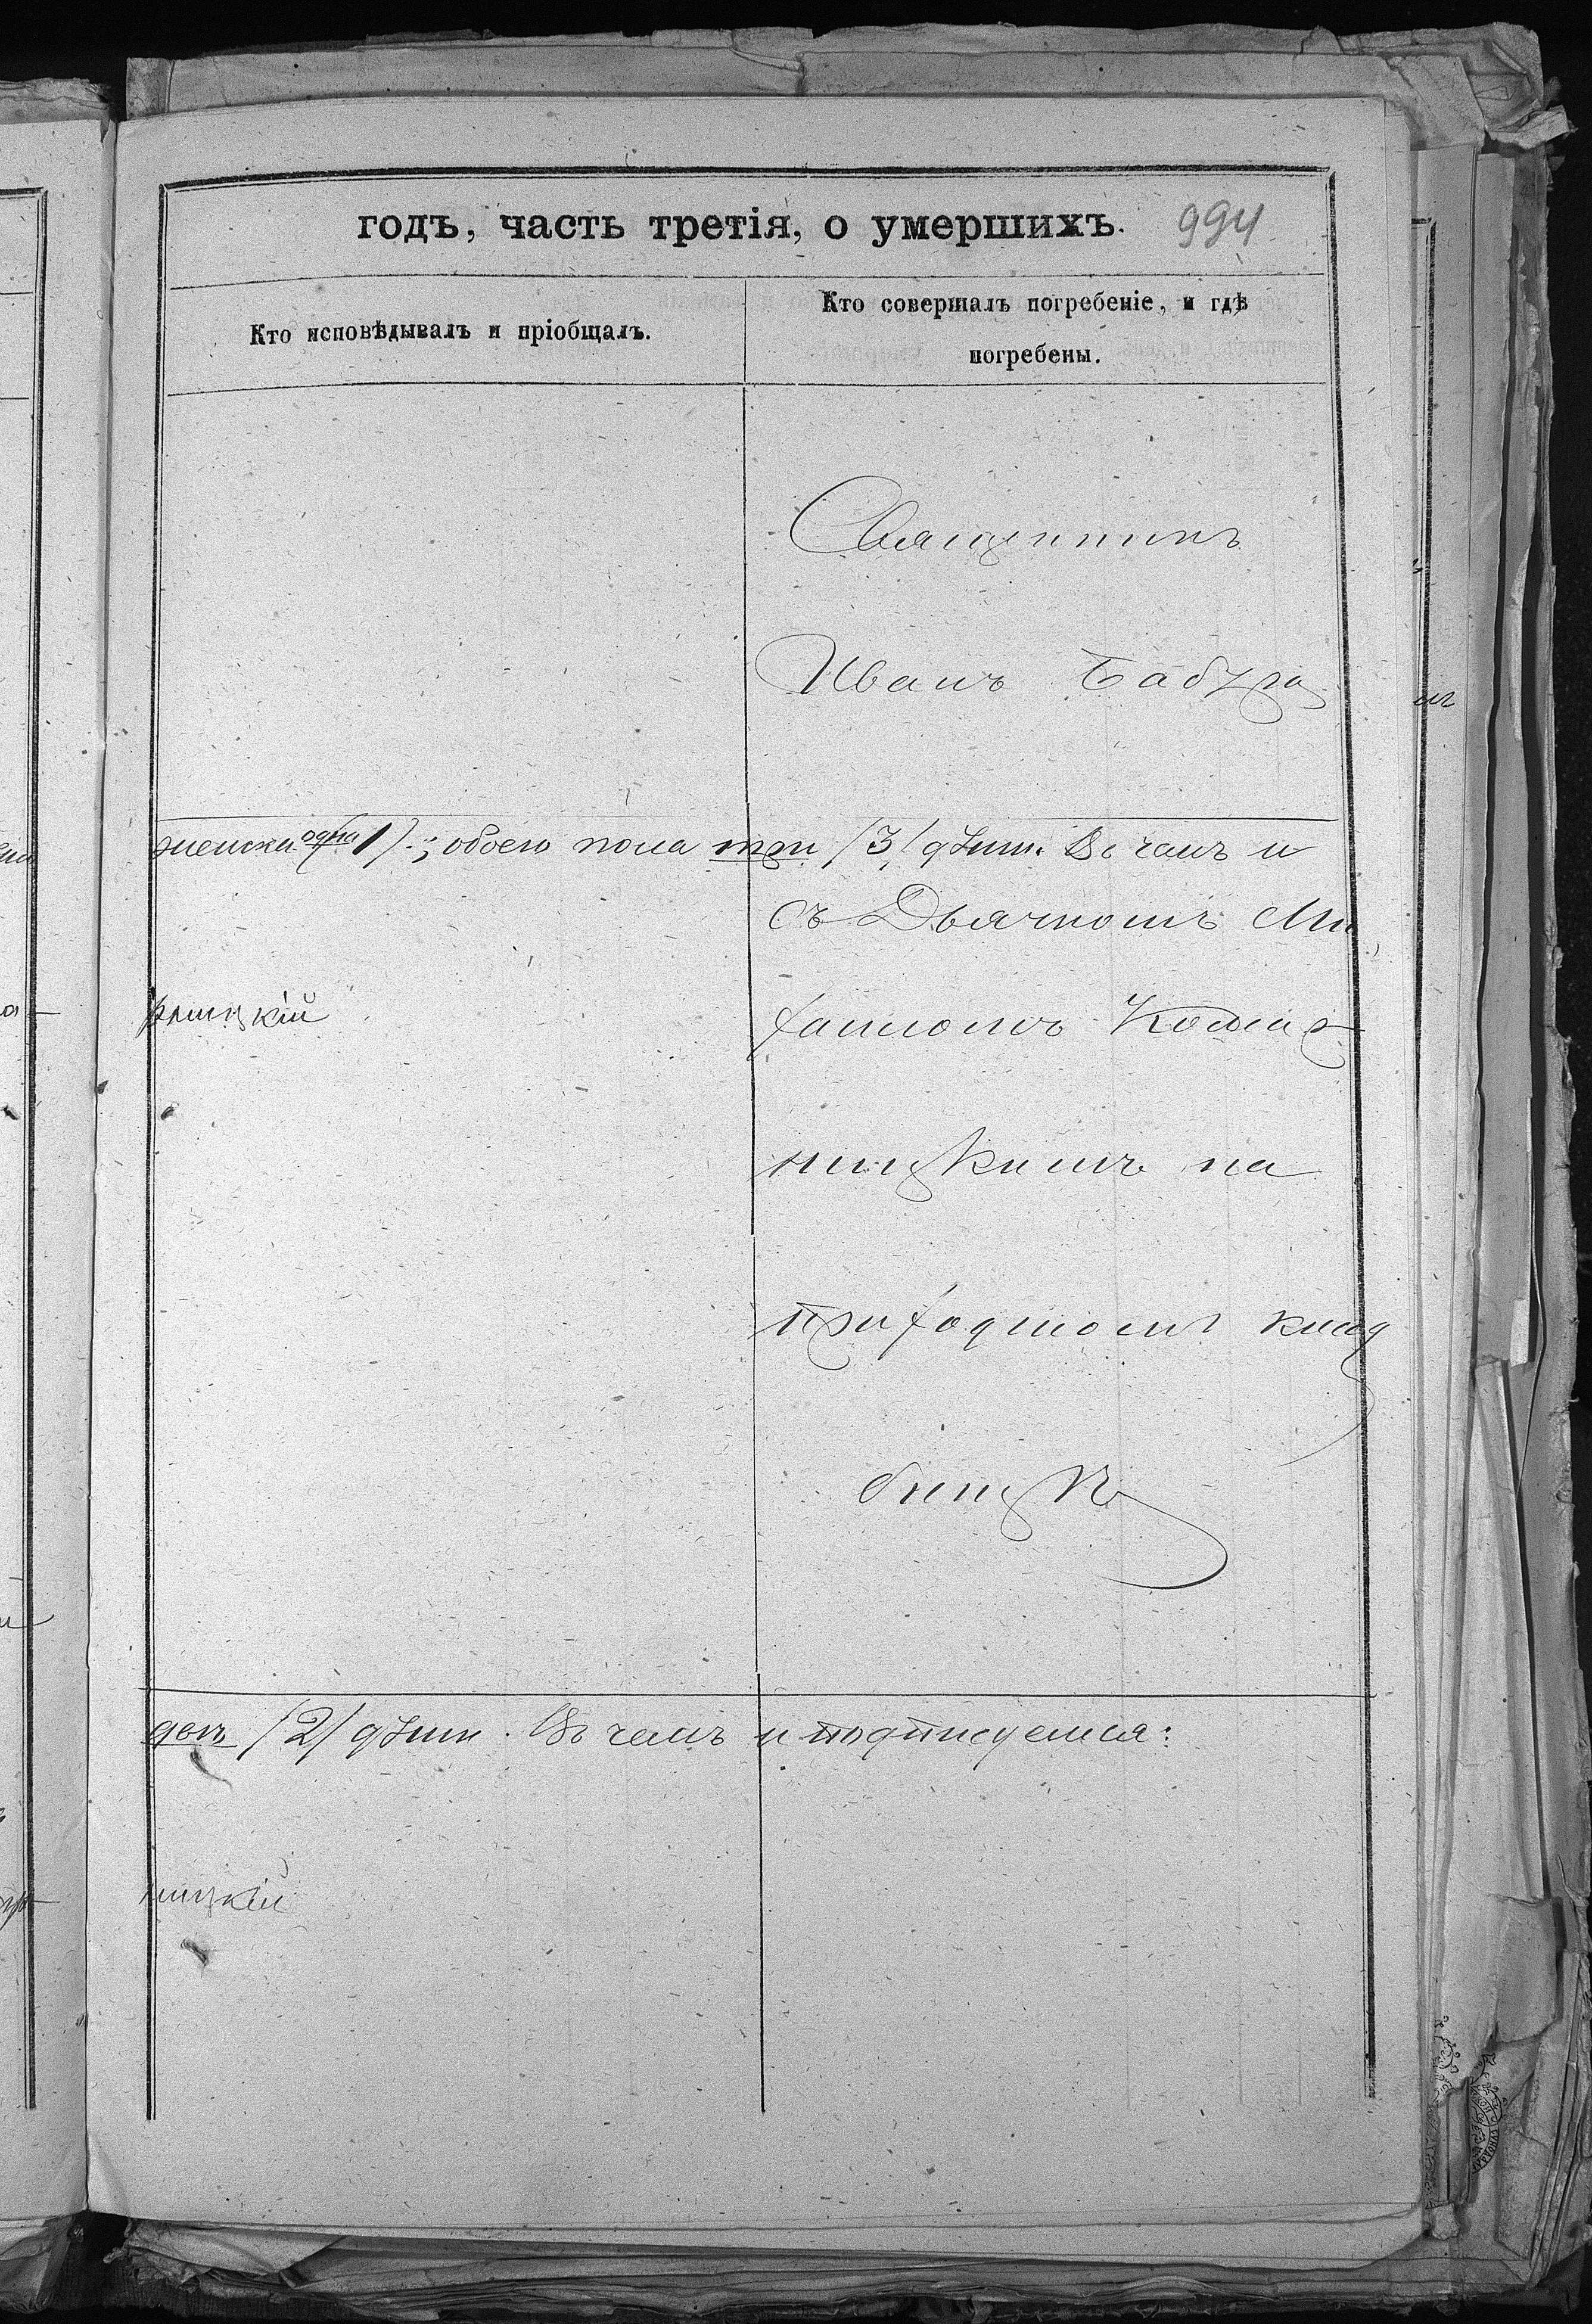 годъ, часть третія, о умершихъ. 994
Кто исповѣдывалъ и пріобщалъ.
Кто совершалъ погребеніе, и гдѣ
погребены.
Священникъ
Иванъ Бабура
женска одна 1) ; обоего пола три /3/ дѣти. Въ чемъ и
съ Дьячкомъ Ми
ницкій
хаиломъ Комар
ницкимъ на
приходскомъ клад
бищѣ
двѣ /2/ дѣти. Въ чемъ и подписуемся:
ницкій